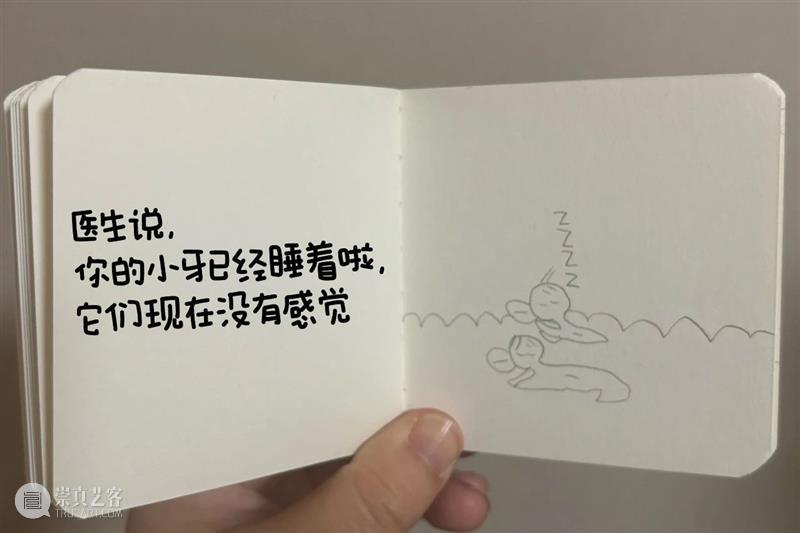 医生说,
你的小牙已经睡着啦,
它们现在没有感觉
Z
Z
Z
Z
Z
崇真艺客
TRUEART.COM